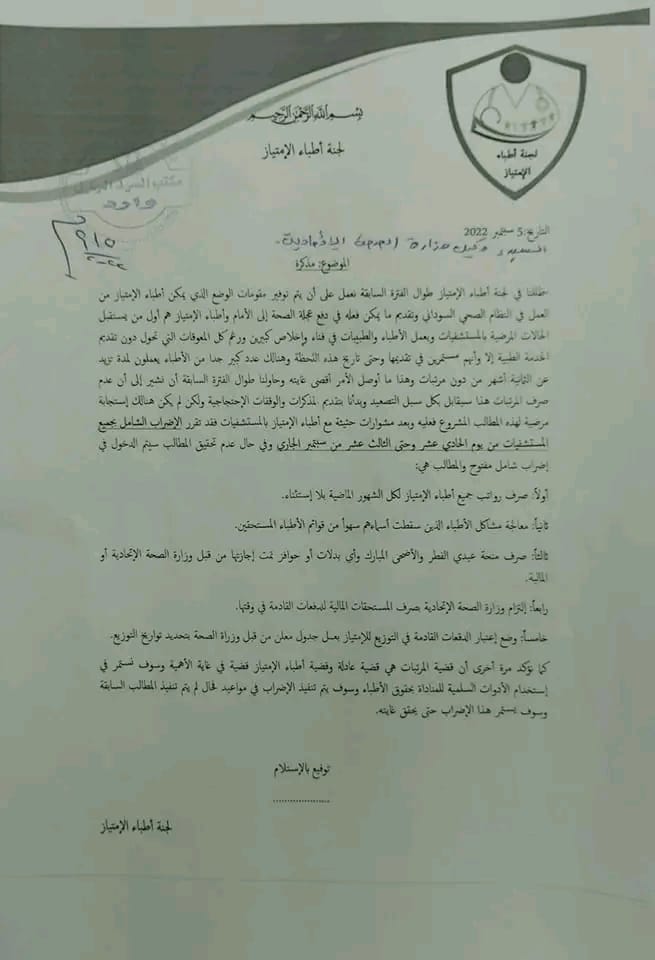 بسم الله الرحمن الرحيم
لجنة أطباء الإمتياز
لجنة أطباء
الإمتياز
مكتب السيد الوكيل
وارد
٩/٥
٢٠٢٢
التاريخ: 5 سبتمبر 2022
السيد/ وكيل وزارة الصحة الإتحادية.
الموضوع: مذكرة
ظللنا في لجنة أطباء الإمتياز طوال الفترة السابقة نعمل على أن يتم توفير مقومات الوضع الذي يمكن أطباء الإمتياز من
العمل في النظام الصحي السوداني وتقديم ما يمكن فعله في دفع عجلة الصحة إلى الأمام وأطباء الإمتياز هم أول من يستقبل
الحالات المرضية بالمستشفيات ويعمل الأطباء والطبيبات في فناء وإخلاص كبيرين ورغم كل المعوقات التي تحول دون تقديم
الخدمة الطبية إلا وأنهم مستمرين في تقديمها وحتى تاريخ هذه اللحظة وهنالك عدد كبير جدا من الأطباء يعملون لمدة تزيد
عن الثمانية أشهر من دون مرتبات وهذا ما أوصل الأمر أقصى غايته وحاولنا طوال الفترة السابقة أن نشير إلى أن عدم
صرف المرتبات هذا سيقابل بكل سبل التصعيد وبدأنا بتقديم المذكرات والوقفات الإحتجاجية ولكن لم يكن هنالك إستجابة
مرضية لهذه المطالب المشروع فعليه وبعد مشوارات حثيثة مع أطباء الإمتياز بالمستشفيات فقد تقرر الإضراب الشامل بجميع
المستشفيات من يوم الحادي عشر وحتى الثالث عشر من سبتمبر الجاري وفي حال عدم تحقيق المطالب سيتم الدخول في
إضراب شامل مفتوح والمطالب هي:
أولاً: صرف رواتب جميع أطباء الإمتياز لكل الشهور الماضية بلا إستثناء.
ثانياً: معالجة مشاكل الأطباء الذين سقطت أسماءهم سهواً من قوائم الأطباء المستحقين.
ثالثاً: صرف منحة عيدي الفطر والأضحى المبارك وأي بدلات أو حوافز تمت إجازتها من قبل وزارة الصحة الإتحادية أو
المالية.
رابعاً: إلتزام وزارة الصحة الإتحادية بصرف المستحقات المالية للدفعات القادمة في وقتها.
خامساً: وضع إعتبار الدفعات القادمة في التوزيع للإمتياز بعمل جدول معلن من قبل وزراة الصحة بتحديد تواريخ التوزيع.
كما نؤكد مرة أخرى أن قضية المرتبات هي قضية عادلة وقضية أطباء الإمتياز قضية في غاية الأهمية وسوف نستمر في
إستخدام الأدوات السلمية للمناداة بحقوق الأطباء وسوف يتم تنفيذ الإضراب في مواعيد لحال لم يتم تنفيذ المطالب السابقة
وسوف يستمر هذا الإضراب حتى يحقق غايته.
توقيع بالإستلام
.................
لجنة أطباء الإمتياز